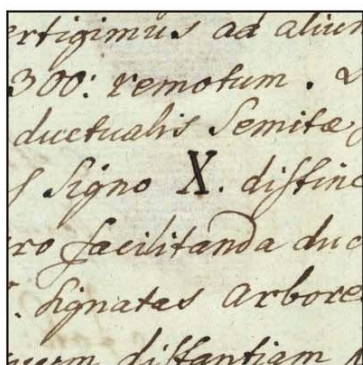 ertigimus ad aliu
300: remotum. &
ductualis Semitæ,
Signo X. distinc
ro facilitanda duc
. Signatas arbore
distantiam